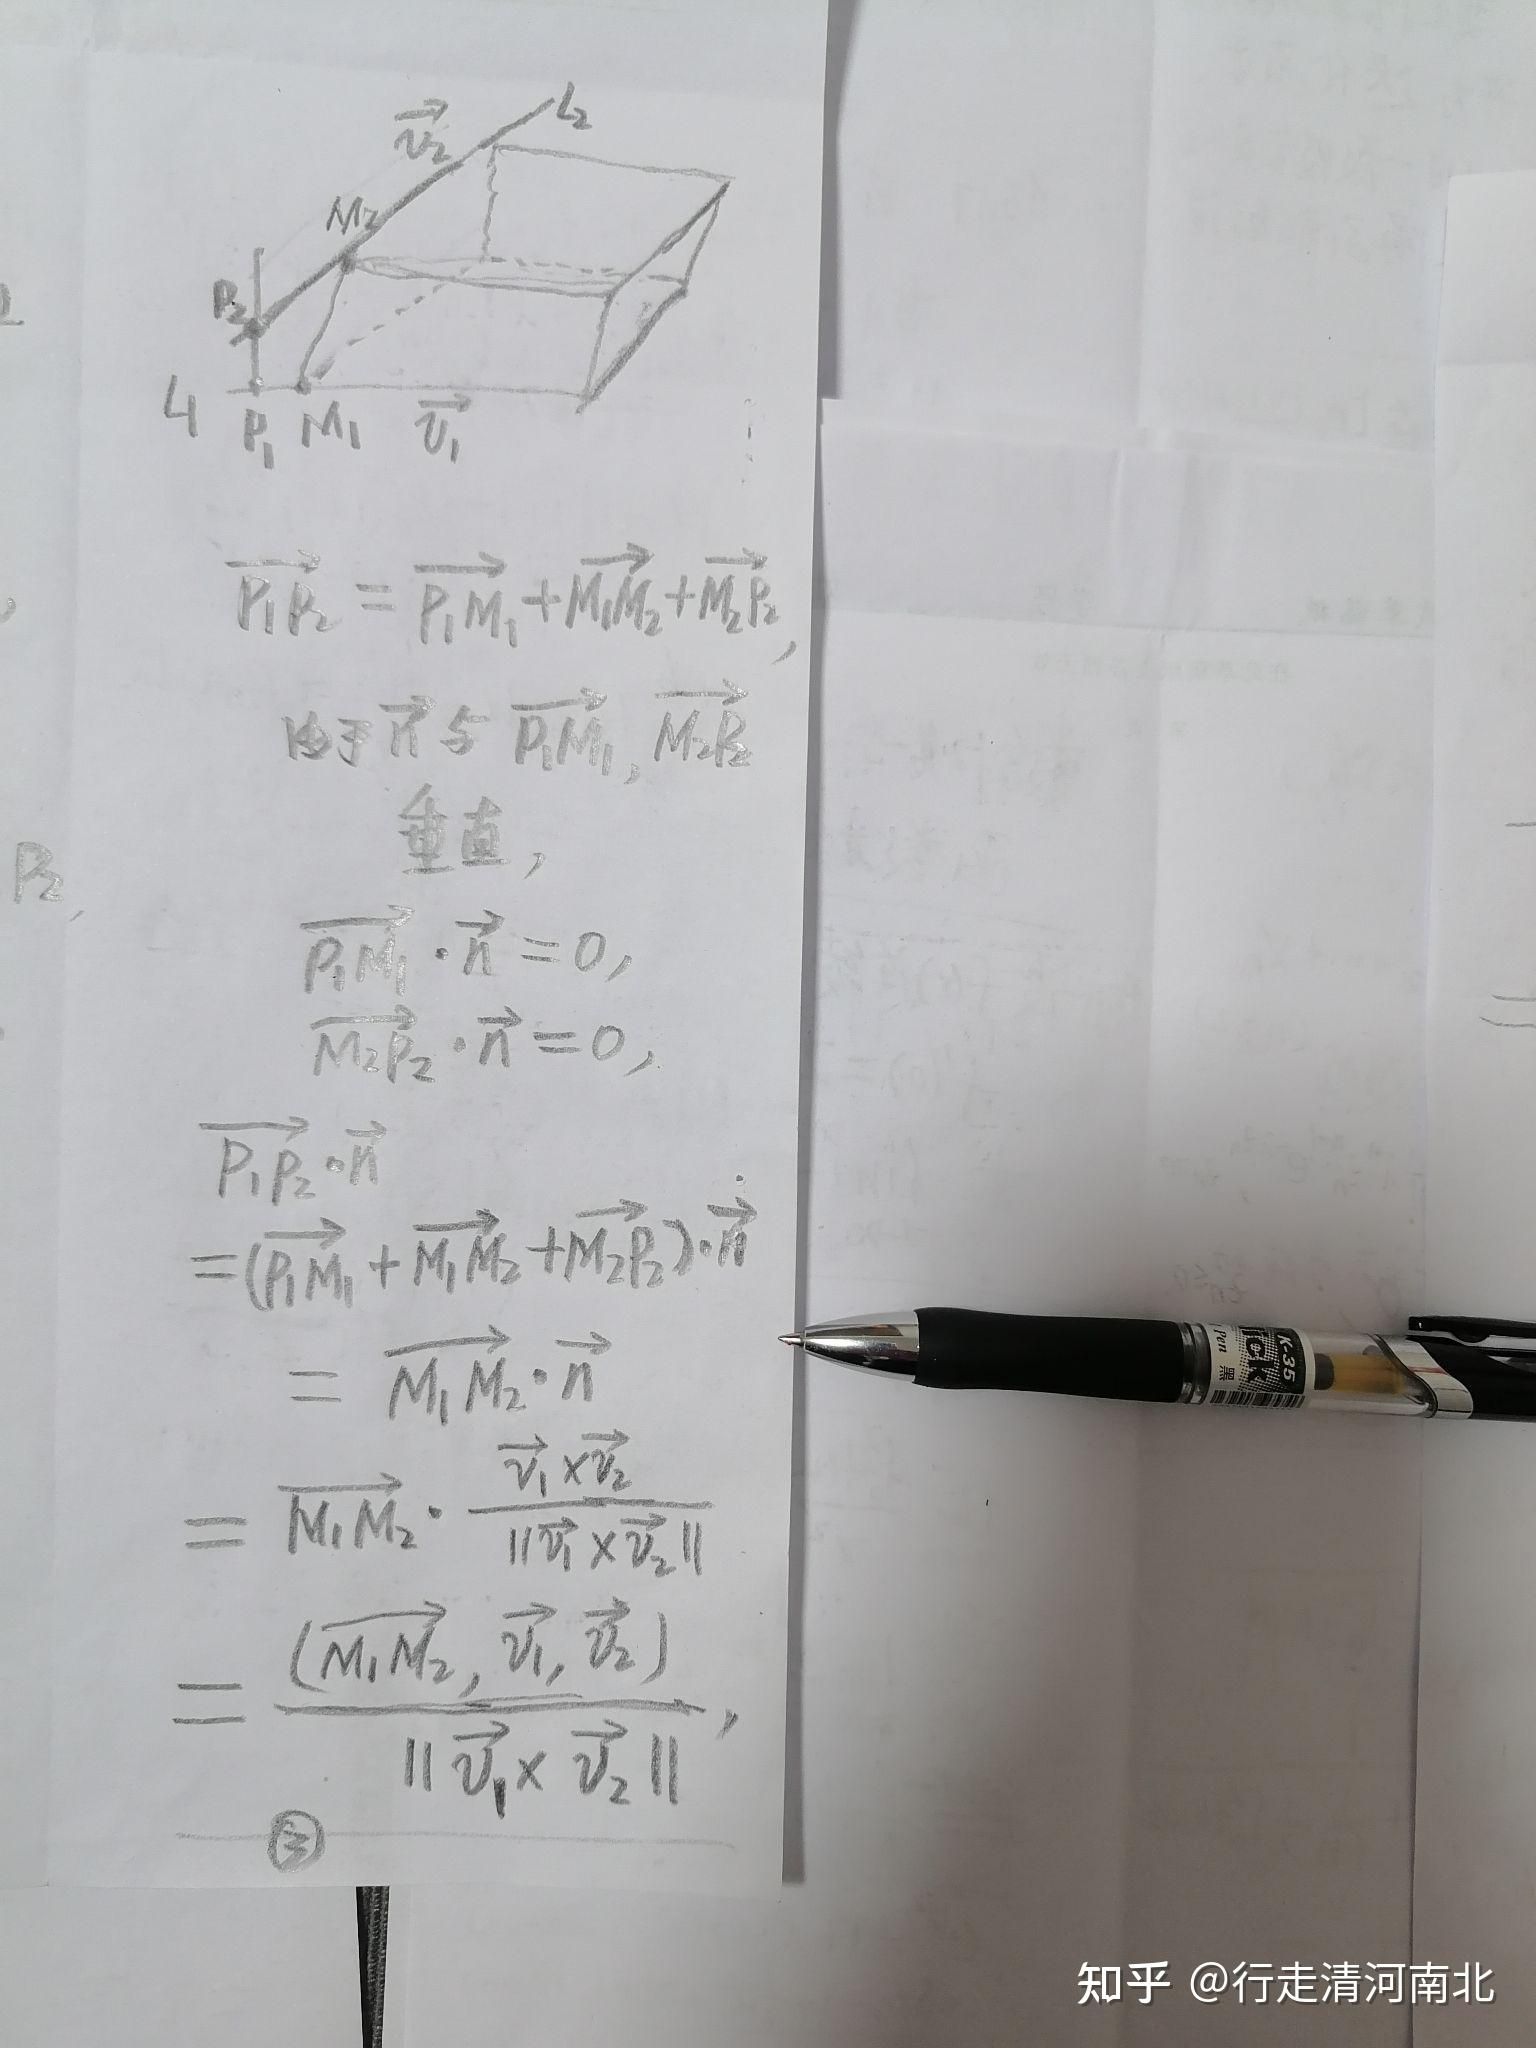 L2
v⃗₂
M₂
P₂
L1
P₁ M₁ v⃗₁
P₁P₂⃗ = P₁M₁⃗ + M₁M₂⃗ + M₂P₂⃗,
由于 n⃗ 与 P₁M₁⃗, M₂P₂⃗
垂直,
P₁M₁⃗ · n⃗ = 0,
M₂P₂⃗ · n⃗ = 0,
P₂,
P₁P₂⃗ · n⃗
= (P₁M₁⃗ + M₁M₂⃗ + M₂P₂⃗) · n⃗
= M₁M₂⃗ · n⃗
= M₁M₂⃗ · (v⃗₁ × v⃗₂) / ||v⃗₁ × v⃗₂||
= (M₁M₂⃗, v⃗₁, v⃗₂) / ||v⃗₁ × v⃗₂||,
K-35
Pen 黑
知乎 @行走清河南北